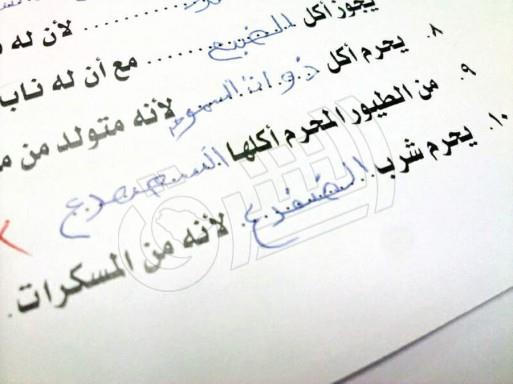 لأن له
يجوز أكل الضبع ........ مع أن له ناب
٨. يحرم أكل ذوات السموم لأنه متولد من
٩. من الطيور المحرم أكلها
١٠. يحرم شرب الضفدع. لأنه من المسكرات.
الشرق